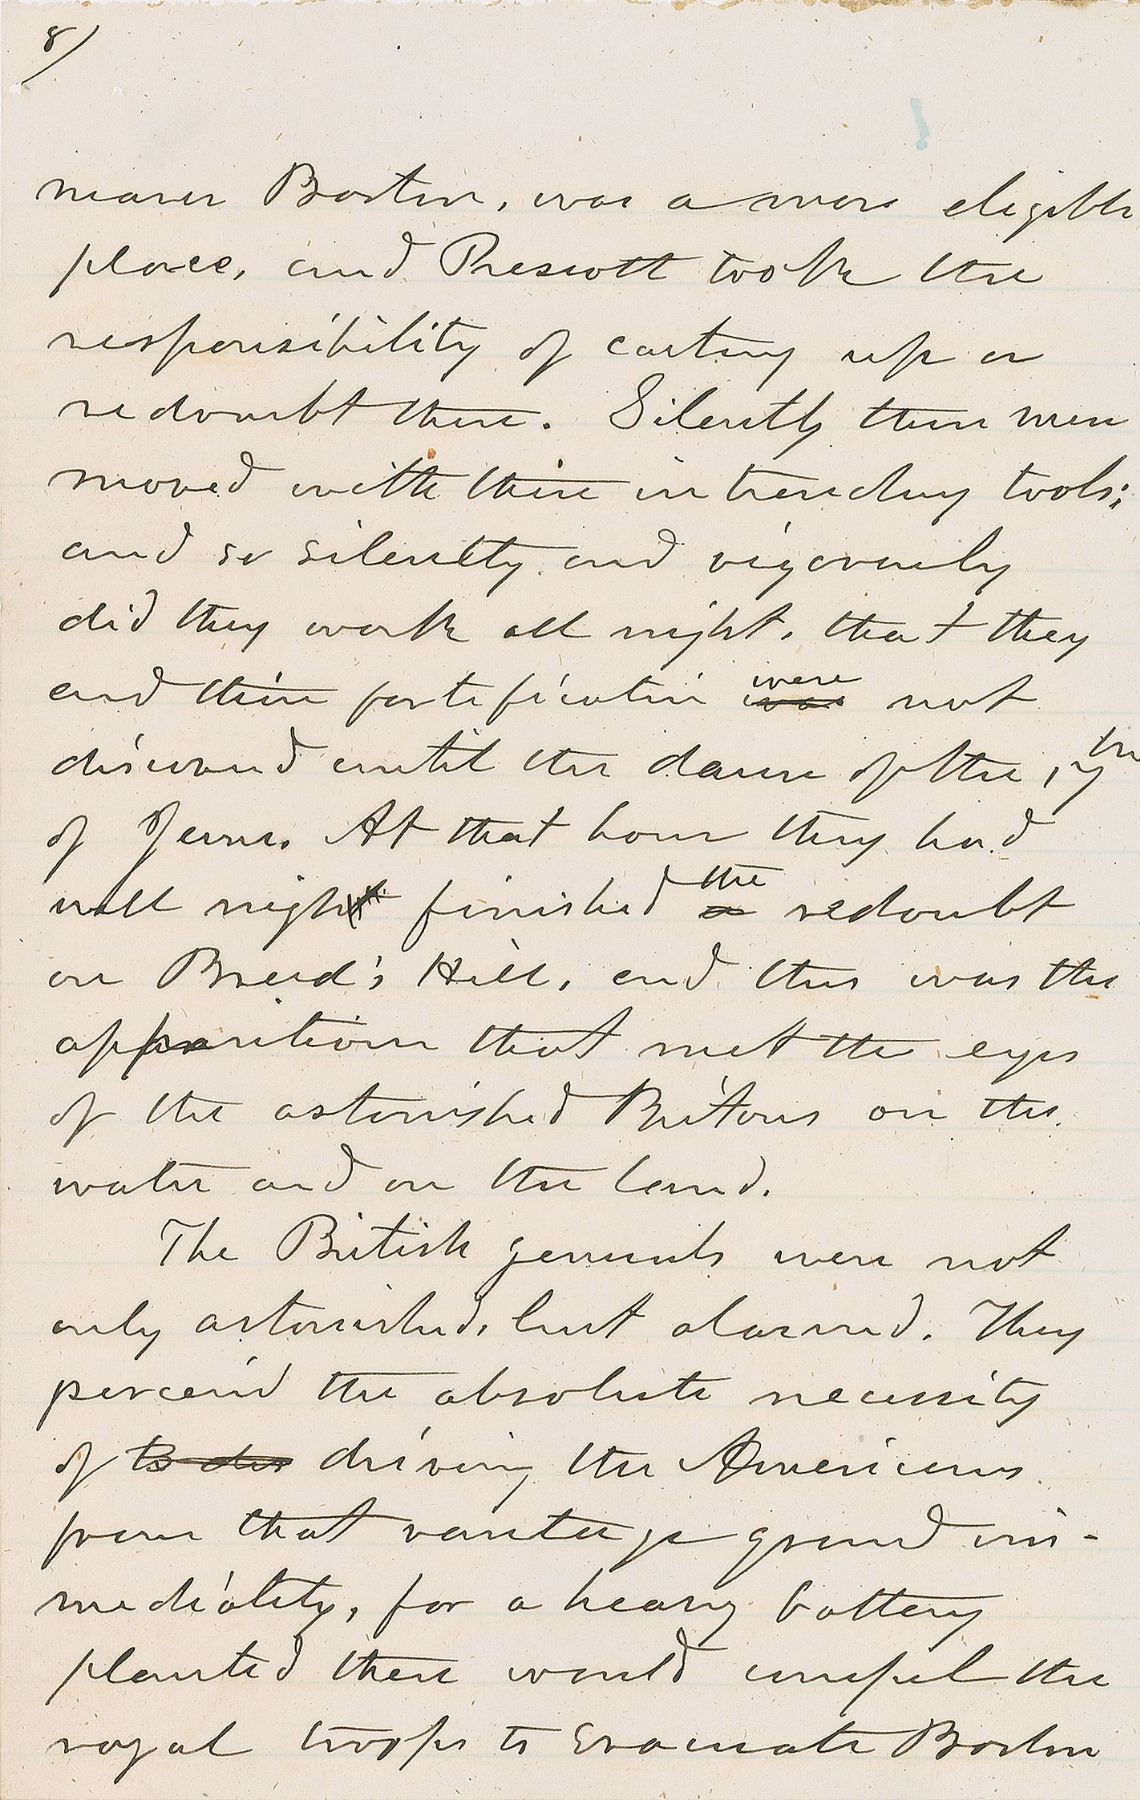 8/
nearer Boston, was a more eligible
place, and Prescott took the
responsibility of casting up a
redoubt there. Silently these men
moved with their intrenching tools;
and so silently and vigorously
did they work all night, that they
and their fortification were not
discovered until the dawn of the 17th
of June. At that hour they had
well nigh finished the redoubt
on Breed's Hill, and this was the
apparition that met the eyes
of the astonished Britons on the
water and on the land.
The British generals were not
only astonished, but alarmed. They
perceived the absolute necessity
of driving the Americans
from that vantage ground im-
mediately, for a heavy battery
planted there would compel the
royal troops to evacuate Boston